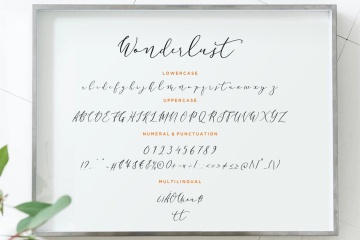 Wonderlust
LOWERCASE
abcdefghijklmnopqrstuvwxyz
UPPERCASE
ABCDEFGHIJKLMNOPQRSTUVWXYZ
NUMERAL & PUNCTUATION
0123456789
MULTILINGUAL